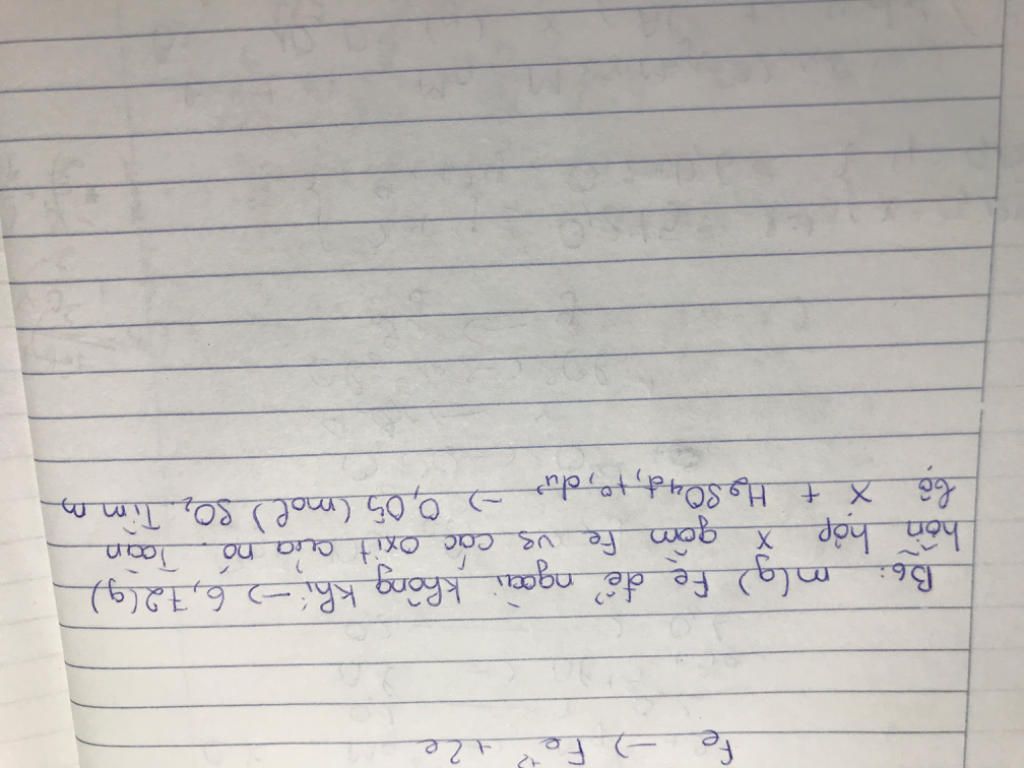 Fe → Fe⁺² + 2e
B6: m(g) Fe để ngoài không khí → 6,72(g)
hỗn hợp X gồm Fe vs các oxit của nó. Toàn
bộ X + H₂SO₄ đ, t°, dư → 0,05 (mol) SO₂. Tìm m